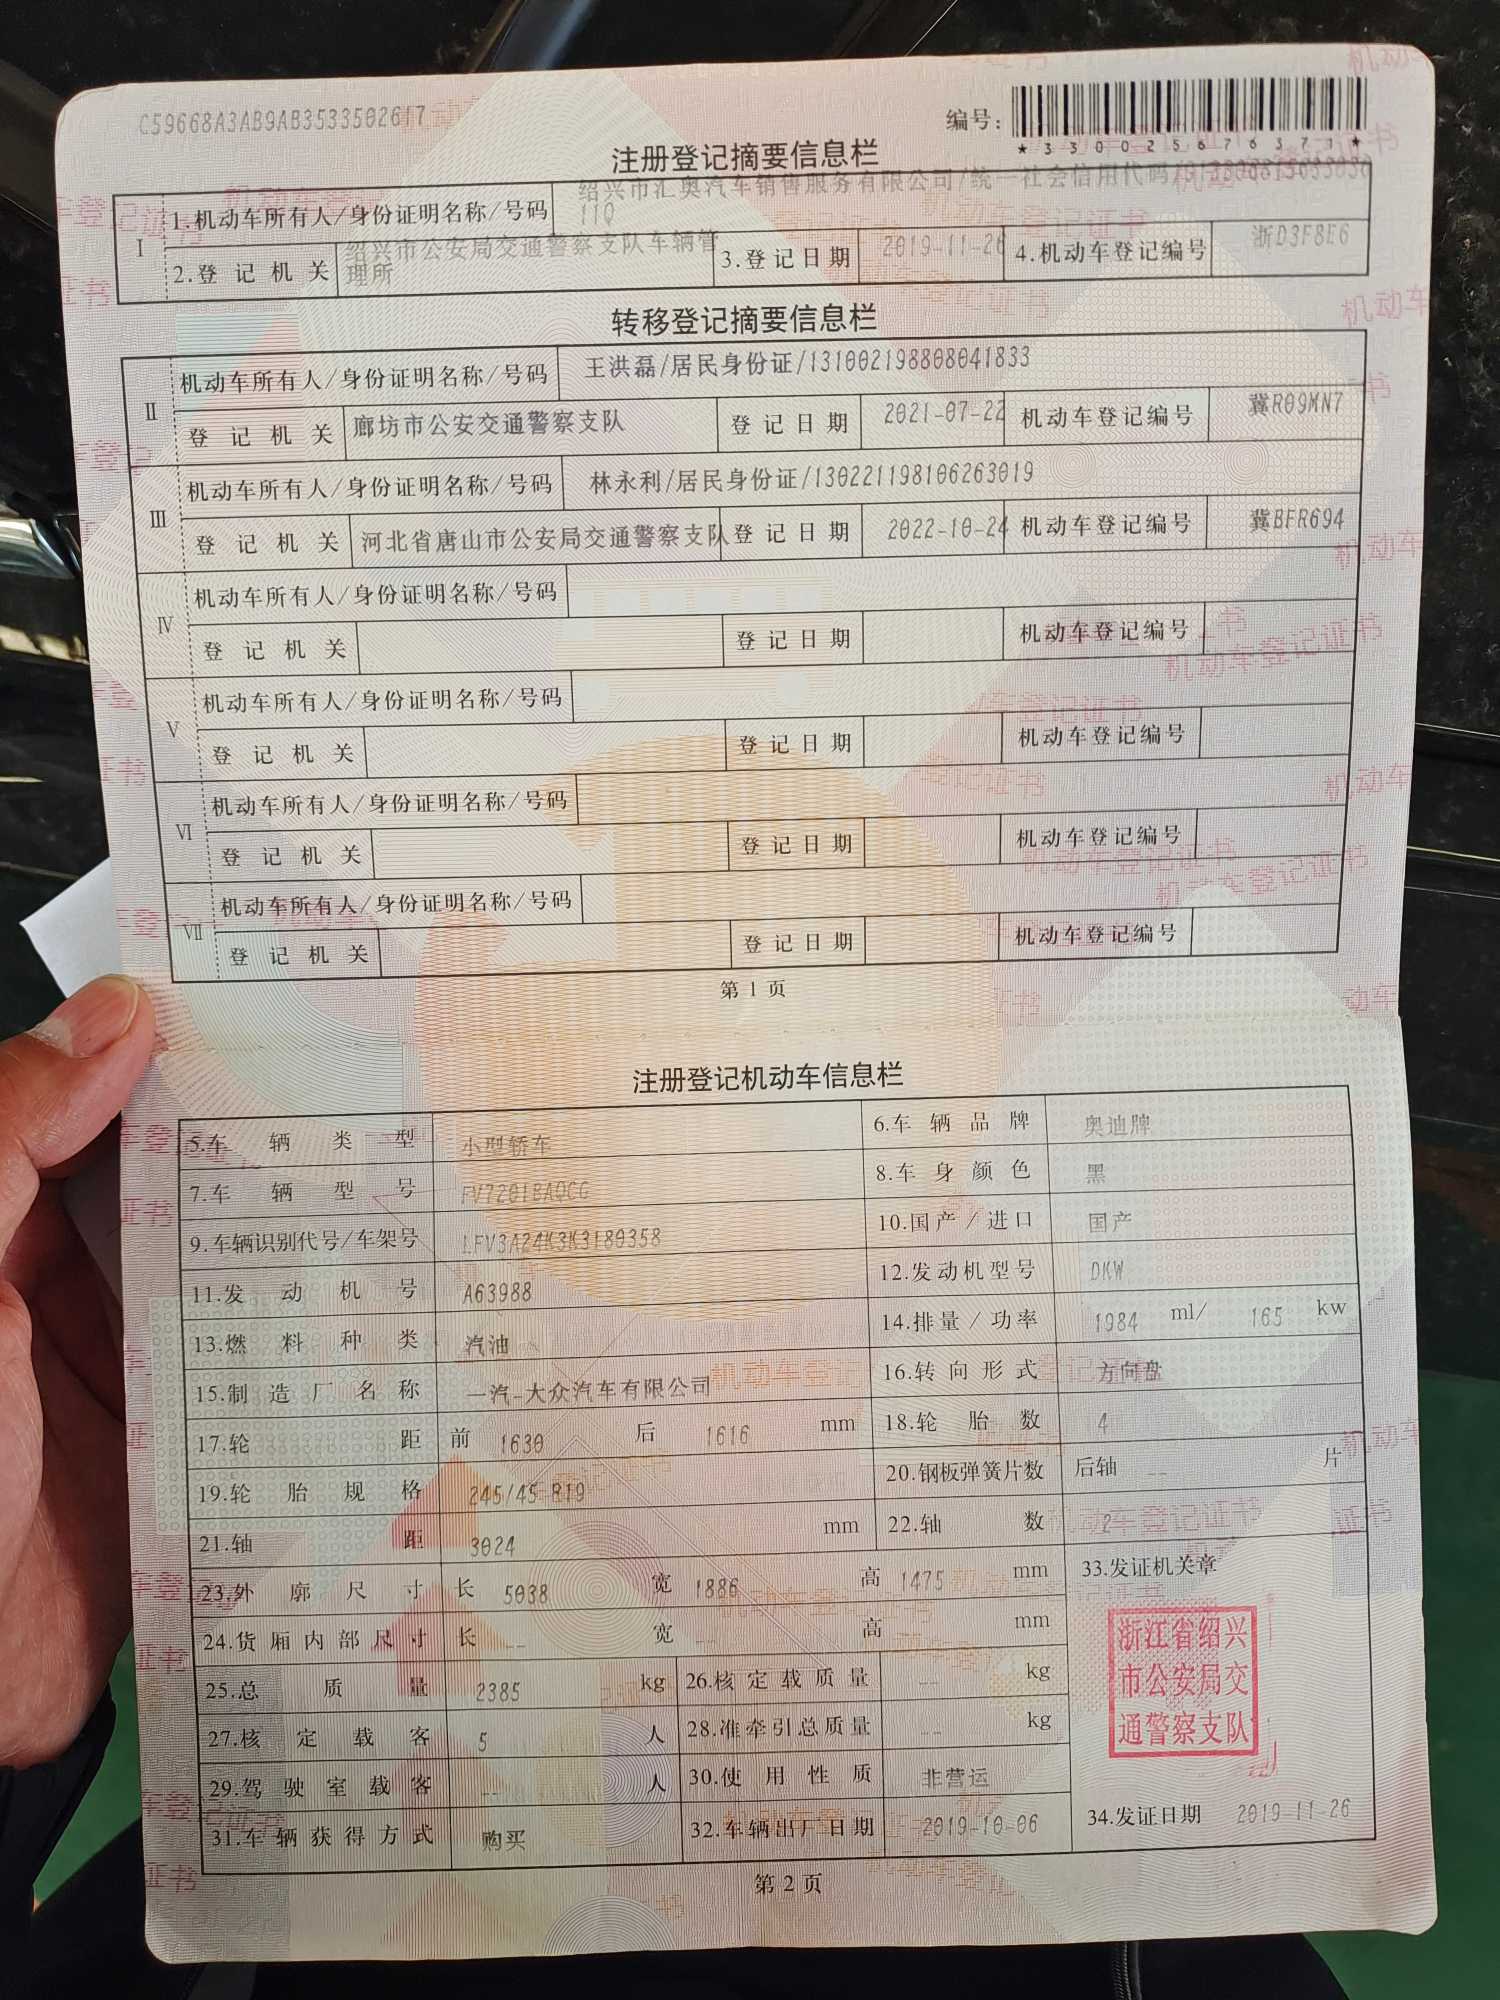 C59668A3AB9AB3533502617
编号：
*330025676371*
注册登记摘要信息栏
I
1.机动车所有人/身份证明名称/号码 绍兴市汇奥汽车销售服务有限公司/统一社会信用代码/
11Q
2.登记机关 绍兴市公安局交通警察支队车辆管理所 3.登记日期 2019-11-26 4.机动车登记编号 浙D3F8E6
转移登记摘要信息栏
II
机动车所有人/身份证明名称/号码 王洪磊/居民身份证/131002198808041833
登记机关 廊坊市公安交通警察支队 登记日期 2021-07-22 机动车登记编号 冀R09MN7
III
机动车所有人/身份证明名称/号码 林永利/居民身份证/130221198106263019
登记机关 河北省唐山市公安局交通警察支队 登记日期 2022-10-24 机动车登记编号 冀BFR694
IV
机动车所有人/身份证明名称/号码
登记机关 登记日期 机动车登记编号
V
机动车所有人/身份证明名称/号码
登记机关 登记日期 机动车登记编号
VI
机动车所有人/身份证明名称/号码
登记机关 登记日期 机动车登记编号
VII
机动车所有人/身份证明名称/号码
登记机关 登记日期 机动车登记编号
第1页
注册登记机动车信息栏
5.车辆类型 小型轿车 6.车辆品牌 奥迪牌
7.车辆型号 FV7201BAQCG 8.车身颜色 黑
9.车辆识别代号/车架号 LFV3A24K3K3180358 10.国产/进口 国产
11.发动机号 A63988 12.发动机型号 DKW
13.燃料种类 汽油 14.排量/功率 1984 ml/ 165 kw
15.制造厂名称 一汽-大众汽车有限公司 16.转向形式 方向盘
17.轮距 前 1630 后 1616 mm 18.轮胎数 4
19.轮胎规格 245/45 R19 20.钢板弹簧片数 后轴 -- 片
21.轴距 3024 mm 22.轴数 2
23.外廓尺寸 长 5038 宽 1886 高 1475 mm 33.发证机关章
24.货厢内部尺寸 长 -- 宽 -- 高 mm
25.总质量 2385 kg 26.核定载质量 -- kg
27.核定载客 5 人 28.准牵引总质量 -- kg
29.驾驶室载客 -- 人 30.使用性质 非营运
31.车辆获得方式 购买 32.车辆出厂日期 2019-10-06 34.发证日期 2019-11-26
浙江省绍兴
市公安局交
通警察支队
第2页